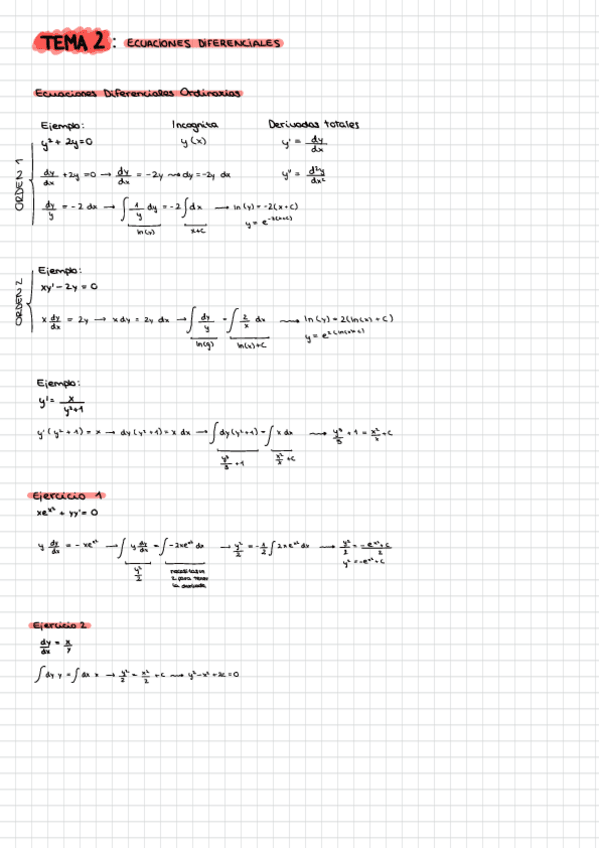 TEMA 2: ECUACIONES DIFERENCIALES
Ecuaciones Diferenciales Ordinarias
Ejemplo: Incognita Derivadas totales
y² + 2y = 0 y(x) y' = dy/dx
ORDEN 1
dy/dx + 2y = 0 → dy/dx = -2y ⟿ dy = -2y dx y'' = d²y/dx²
dy/y = -2 dx → ∫ 1/y dy = -2 ∫ dx → ln(y) = -2(x+c)
ln(y) x+c y = e^-2(x+c)
Ejemplo:
xy' - 2y = 0
ORDEN 2
x dy/dx = 2y → x dy = 2y dx → ∫ dy/y = ∫ 2/x dx ⟿ ln(y) = 2(ln(x)+c)
ln(y) ln(x)+c y = e^2(ln(x)+c)
Ejemplo:
y' = x/y²+1
y'(y²+1) = x → dy(y²+1) = x dx → ∫ dy(y²+1) = ∫ x dx ⟿ y³/3 + 1 = x²/x + c
y³/3 + 1 x²/x + c
Ejercicio 1
xe^x² + yy' = 0
y dy/dx = -xe^x² → ∫ y dy/dx = ∫ -2xe^x² dx → y²/2 = -1/2 ∫ 2xe^x² dx → y²/2 = -e^x²+c/2
y²/2 y² = -e^x² + c
2 para tener
la derivada
Ejercicio 2
dy/dx = x/y
∫ dy y = ∫ dx x → y²/2 = x²/2 + c ⟿ y² - x² + 2c = 0